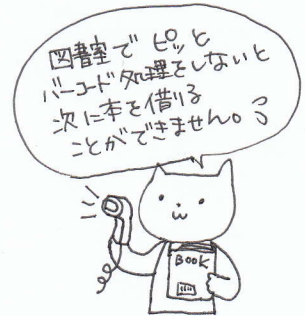 図書室でピッと
バーコード処理をしないと
次に本を借りる
ことができません。
BOOK